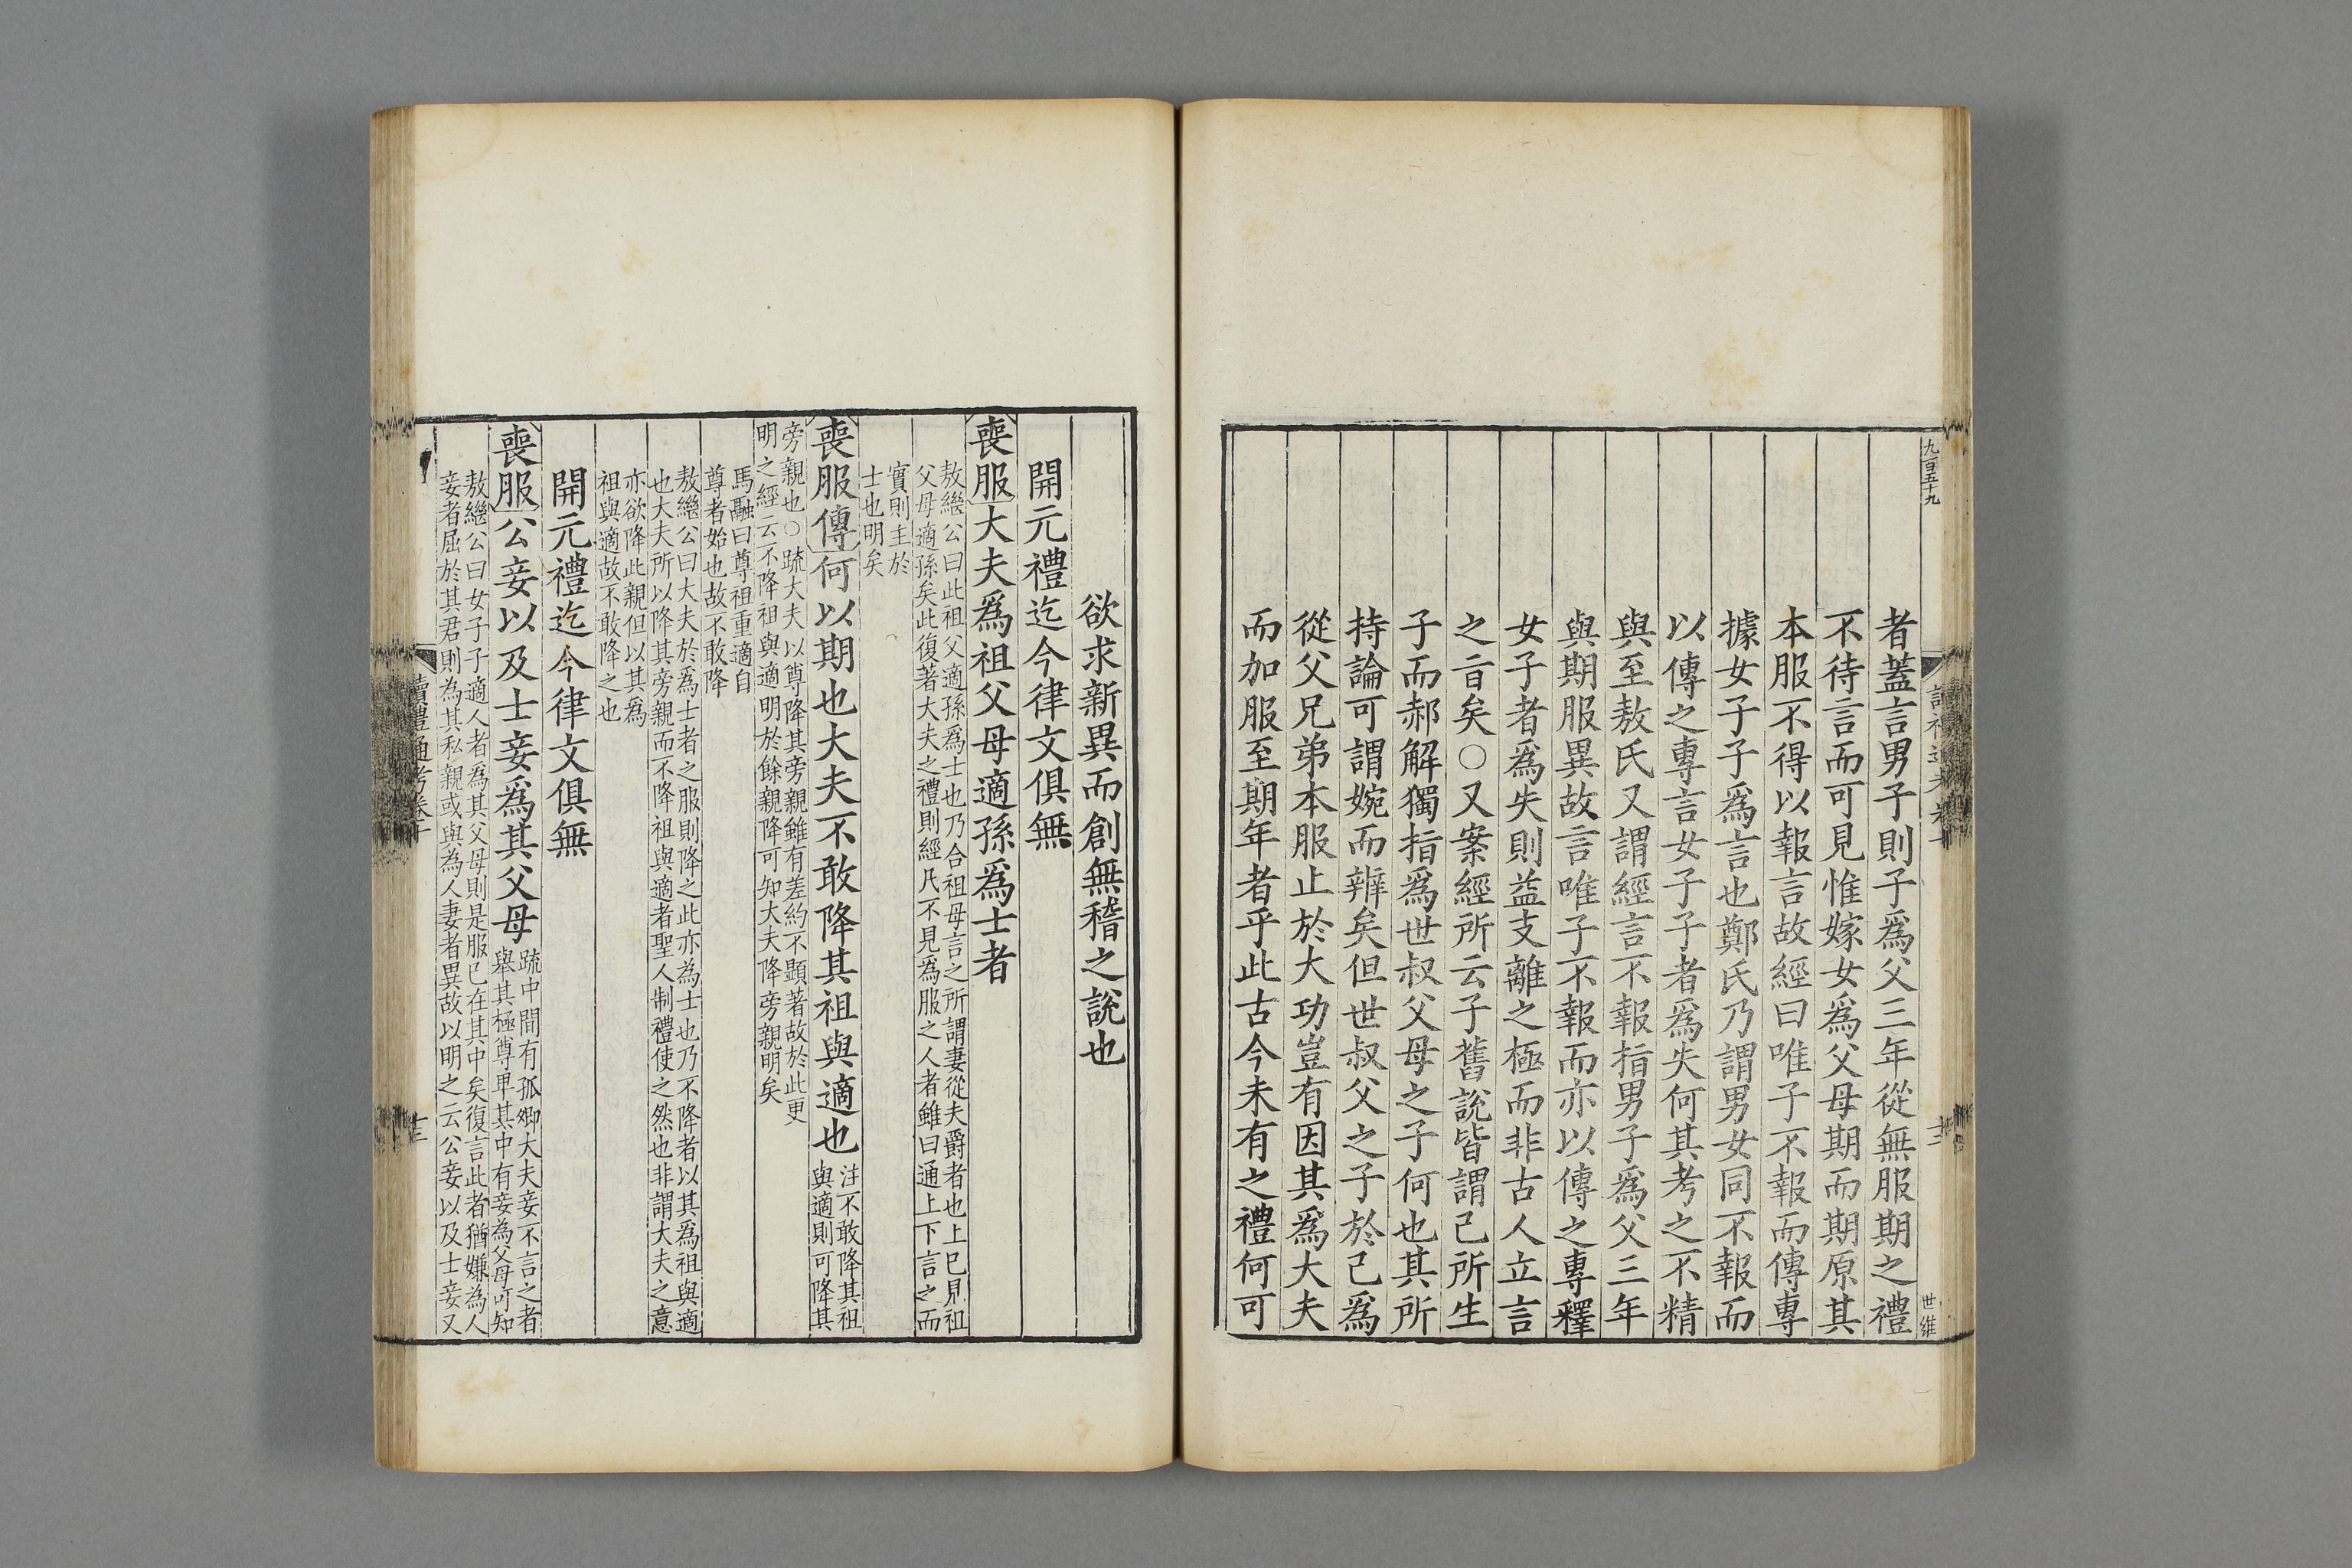 者蓋言男子則子爲父三年從無服期之禮
不待言而可見惟嫁女爲父母期而期原其
本服不得以報言故經曰唯子不報而傳專
據女子子爲言也鄭氏乃謂男女同不報而
以傳之專言女子子者爲失何其考之不精
與至敖氏又謂經言不報指男子爲父三年
與期服異故言唯子不報而亦以傳之專釋
女子者爲失則益支離之極而非古人立言
之旨矣○又案經所云子舊說皆謂己所生
子而郝解獨指爲世叔父母之子何也其所
持論可謂婉而辨矣但世叔父之子於己爲
從父兄弟本服止於大功豈有因其爲大夫
而加服至期年者乎此古今未有之禮何可
九百五十九
十二
世維
欲求新異而創無稽之說也
開元禮迄今律文俱無
喪服大夫爲祖父母適孫爲士者
敖繼公曰此祖父適孫爲士也乃合祖母言之所謂妻從夫爵者也上已見祖
父母適孫矣此復著大夫之禮則經凡不見爲服之人者雖曰通上下言之而
實則主於
士也明矣
喪服傳何以期也大夫不敢降其祖與適也
注不敢降其祖
與適則可降其
旁親也○疏大夫以尊降其旁親雖有差約不顯著故於此更
明之經云不降祖與適明於餘親降可知大夫降旁親明矣
馬融曰尊祖重適自
尊者始也故不敢降
敖繼公曰大夫於為士者之服則降之此亦為士也乃不降者以其爲祖與適
也大夫所以降其旁親而不降祖與適者聖人制禮使之然也非謂大夫之意
亦欲降此親但以其爲
祖與適故不敢降之也
開元禮迄今律文俱無
喪服公妾以及士妾爲其父母
疏中間有孤卿大夫妾不言之者
舉其極尊卑其中有妾為父母可知
敖繼公曰女子子適人者爲其父母則是服已在其中矣復言此者猶嫌為人
妾者屈於其君則為其私親或與為人妻者異故以明之云公妾以及士妾又
讀禮通考卷十
十三